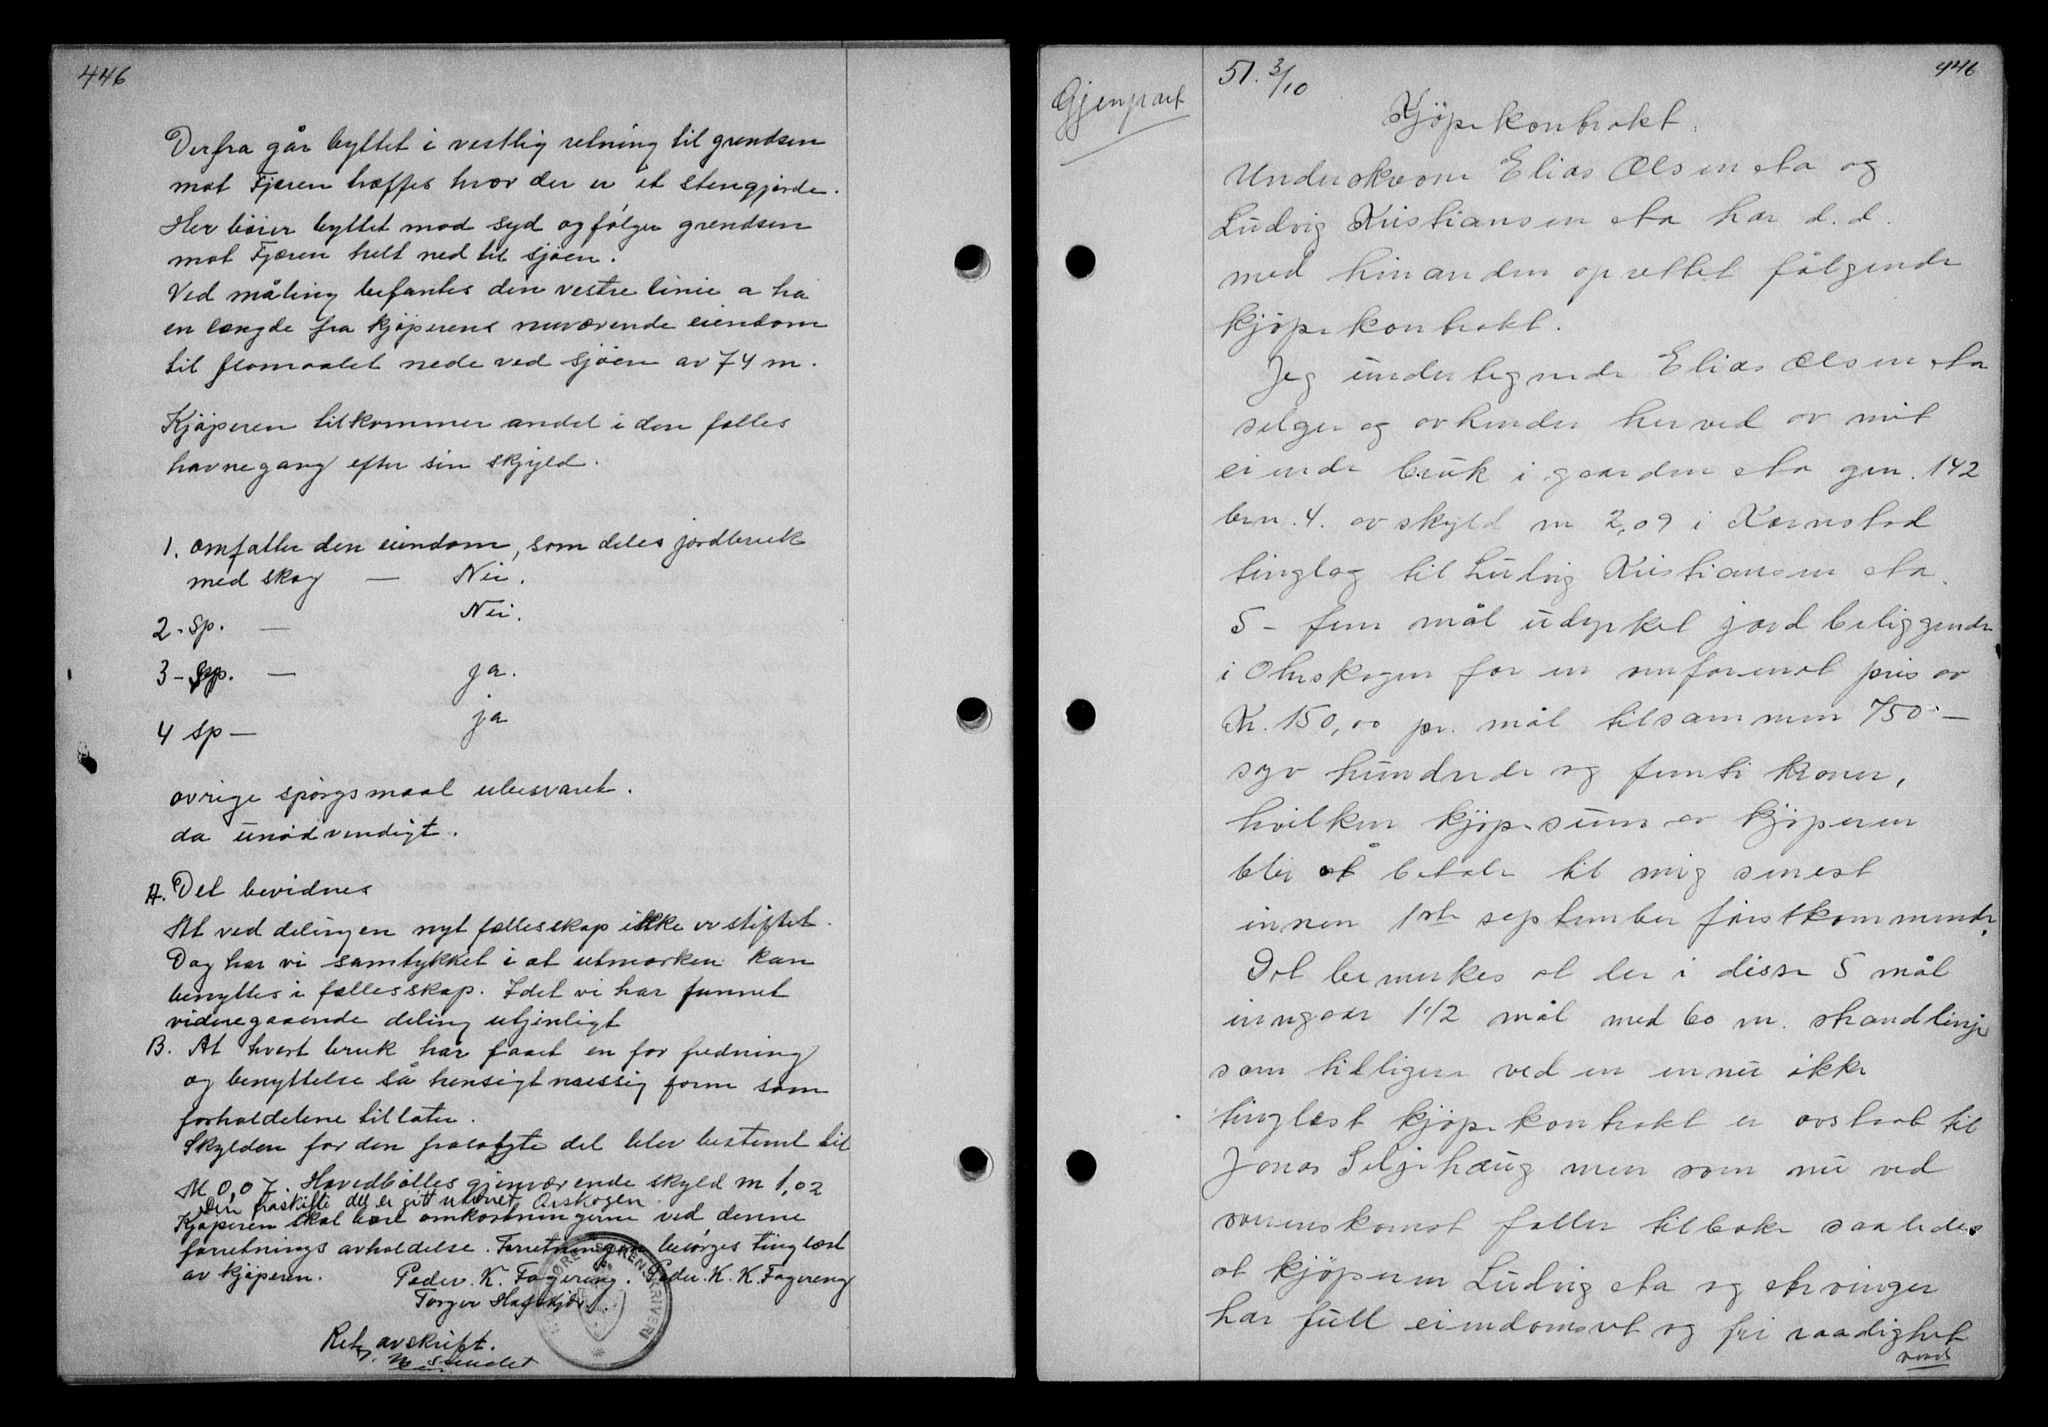 446
Derfra går byttet i vestlig retning til grendsen
mot Fjæren træffes hvor der er et stengjerde.
Her böier byttet mod syd og følger grendsen
mot Fjæren helt ned til sjøen.
Ved måling befantes den vestre linie a ha
en længde fra kjøperens nuværende eiendom
til flomaalet nede ved sjøen av 74 m.
Kjøperen tilkommer andel i den fælles
havnegang efter sin skyld.
1. omfatter den eiendom, som deles jordbruk
med skog — Nei.
2 - Sp. — Nei.
3 - Sp. — ja.
4 Sp — ja
øvrige spørgsmaal ubesvaret.
da unødvendigt.
A. Det bevidnes
At ved delingen nyt fællesskap ikke er stiftet.
Dog har vi samtykket i at utmarken kan
benyttes i fællesskap. Idet vi har funnet
videregaaende deling utjenligt
B. At hvert bruk har faaet en for fredning
og benyttelse så hensigtmæssig form som
forholdelene tillater.
Skylden for den fraskilte del blev bestemt til
M 0,07. Hovedbøllets gjenværende skyld m 1,02
Den fraskilte del er gitt navnet Oirskogen
Kjøperen skal bære omkostningerne ved denne
forretnings avholdelse. Forretningen besørges tinglæst
av kjøperen. Peder. K. Fagereng. Peder. K. K. Fagereng
Torger Hafskjær
Ret avskrift.
SORENSKRIVERI
Gjenpart
51. 3/10
446
Kjöpekontrakt.
Underskrevne Elias Olsen Sta og
Ludvig Kristiansen Sta har d. d.
med hinanden oprettet fölgende
kjöpekontrakt.
Jeg undertegnede Elias Olsen Sta
selger og avhender herved av mit
eiende bruk i gaarden Sta gnr. 142
brn. 4. av skyld m 2,09 i Kvernstad
tinglag til Ludvig Kristiansen Sta.
5 - fem mål udyrket jord beliggende
i Oterskogen for en omforenet pris av
Kr. 150,00 pr. mål tilsammen 750 -
syv hundrede og femti kroner,
hvilken kjöpesum er kjöperen
blir at betale til mig senest
innen 1ste september förstkommende.
Det bemerkes at der i disse 5 mål
inngaar 1 1/2 mål med 60 m. strandlinje
som tidligere ved en ennu ikke
tinglest kjöpekontrakt er avstaat til
Jonas Seljehaug men som nu ved
overenskomst faller tilbake saaledes
at kjöperen Ludvig Sta og etr vinger
har full eiendomsret og fri raadighet
vend